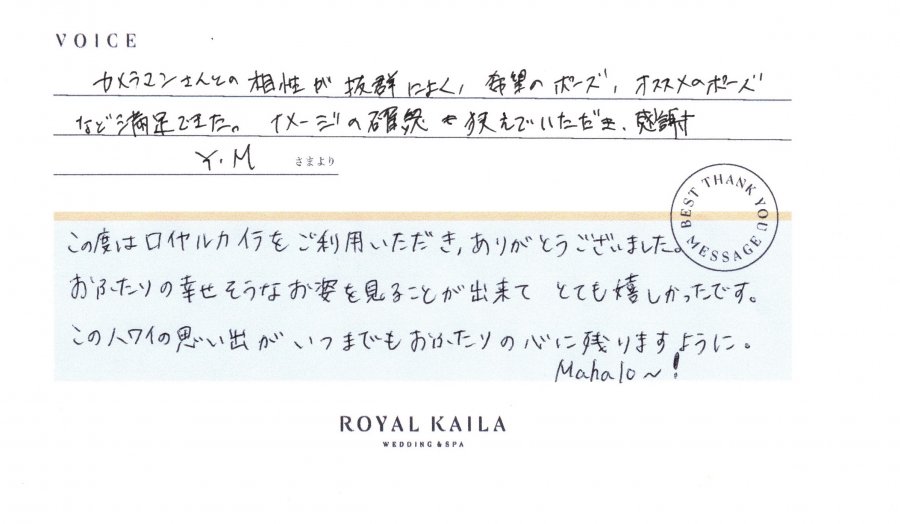 VOICE
カメラマンさんとの相性が抜群によく、希望のポーズ、オススメのポーズ
など満足できた。イメージの確認も叶えていただき、感謝す
Y.M さまより
BEST THANK YOU MESSAGE
この度はロイヤルカイラをご利用いただき、ありがとうございました。
おふたりの幸せそうなお姿を見ることが出来て とても嬉しかったです。
このハワイの思い出がいつまでもおふたりの心に残りますように。
Mahalo〜!
ROYAL KAILA
WEDDING & SPA